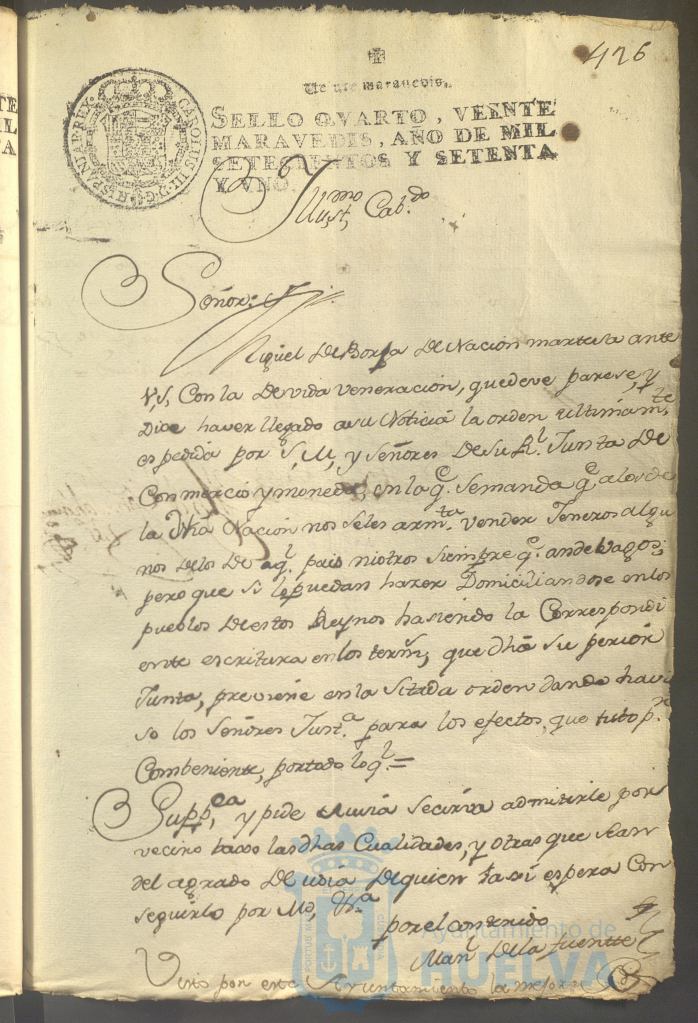 426
Ve nte maravedis.
SELLO QVARTO, VEINTE
MARAVEDIS, AÑO DE MIL
SETECIENTOS Y SETENTA
Y VNO.
CAROLUS III. D. G. HISPANIAR. REX.
Illust.mo Cab.do
Señor:
Miguel De Borja De Nación martesa ante
V,S, Con la Devida veneración, quedeve parese, y
Dice haver llegado asu Noticia la orden ultimam.te
espedida por S, M, y Señores Desu R.l Junta De
Conmercio y moneda, en la q.e Semanda q.e alos de
la Nacion nos seles vender Jeneros algu
nos delos De aq.l pais niotros siempre q.e ande Vagos;
pero que si lopuedan hazer Domiciliandose enlos
pueblos Destos Reynos hasiendo la Correspondi
ente escritura enlos term.s, que dhâ su perior
Junta, previene en la Sitada orden dando havi
so los Señores Just.a para los efectos, que
Combeniente, portado loq.l =
Supp,ca y pide secirva admitirle por
vecino baxo lasdhas Cualidades, y otras que sean
del agrado De De quien asi espera Con
seguirlo por
por el contenido
Man.l Dela fuentte
Visto por este Ayuntamiento la
Ayuntamiento de
HUELVA